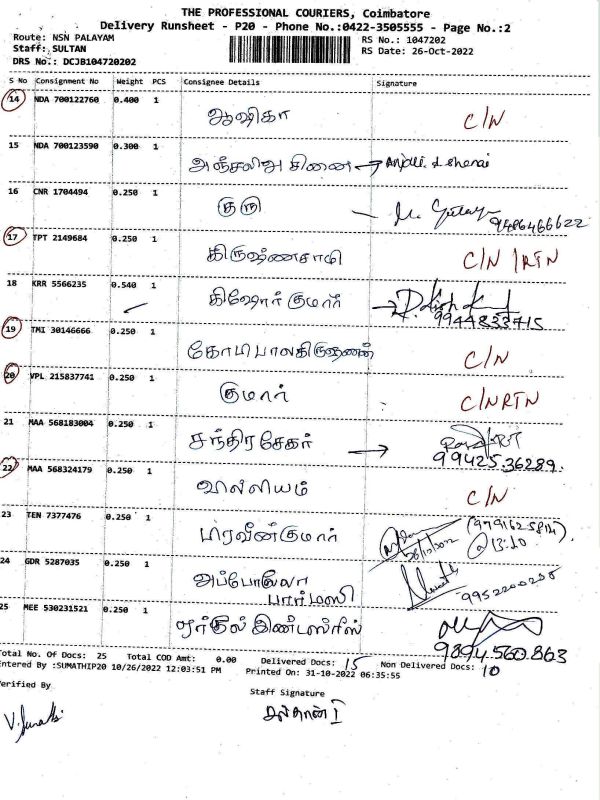 THE PROFESSIONAL COURIERS, Coimbatore
Delivery Runsheet - P20 - Phone No.:0422-3505555 - Page No.:2
Route: NSN PALAYAM RS No.: 1047202
Staff: SULTAN RS Date: 26-Oct-2022
DRS No.: DCJB104720202
S No Consignment No Weight PCS Consignee Details Signature
14 NDA 700122760 0.400 1 ஆஷிகா C/N
15 NDA 700123590 0.300 1 அஞ்சலிஅ சினை Anjali
16 CNR 1704494 0.250 1 குரு 9486466622
17 TPT 2149684 0.250 1 கிருஷ்ணசாமி C/N /RTN
18 KRR 5566235 0.540 1 கிஷோர் குமார் 9944833715
19 TMI 30146666 0.250 1 கோபிபாலகிருஷ்ணன் C/N
20 VPL 215837741 0.250 1 குமார் C/N RTN
21 MAA 568183004 0.250 1 சந்திரசேகர் 99425 36289
22 MAA 568324179 0.250 1 வால்லியம் C/N
23 TEN 7377476 0.250 1 பிரவீன்குமார் 26/10/2022 (9791625814) @13:10
24 GDR 5287035 0.250 1 அப்போலோ
பார்மஸி 9952200258
25 MEE 530231521 0.250 1 இண்டஸ்ரீஸ் 9894560863
Total No. Of Docs: 25 Total COD Amt: 0.00 Delivered Docs: 15 Non Delivered Docs: 10
Entered By :SUMATHIP20 10/26/2022 12:03:51 PM Printed On: 31-10-2022 06:35:55
Verified By Staff Signature
சுல்தான்